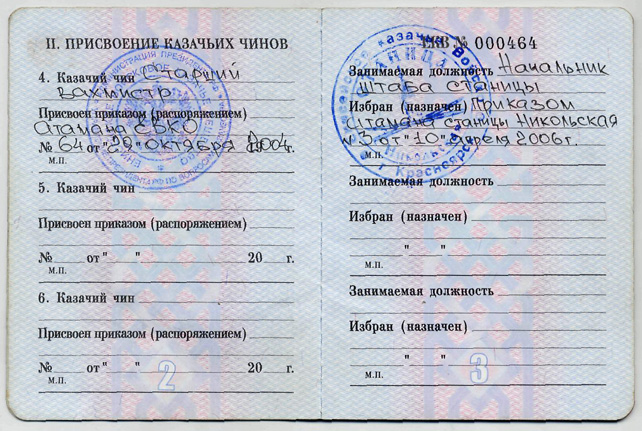 II. ПРИСВОЕНИЕ КАЗАЧЬИХ ЧИНОВ
4. Казачий чин Старший
вахмистр
Присвоен приказом (распоряжением)
Атамана ЕВКО
№ 64 от "29" октября 2004 г.
М.П.
5. Казачий чин
Присвоен приказом (распоряжением)
№ от " " 20 г.
М.П.
6. Казачий чин
Присвоен приказом (распоряжением)
№ от " " 20 г.
М.П.
2
ЕКВ № 000464
Занимаемая должность Начальник
штаба станицы
Избран (назначен) приказом
Атамана станицы Никольская
№3 от "10" апреля 2006 г.
М.П.
Занимаемая должность
Избран (назначен)
" " г.
М.П.
Занимаемая должность
Избран (назначен)
" " г.
М.П.
3
казачье Войско
СТАНИЦА
г Красноярск